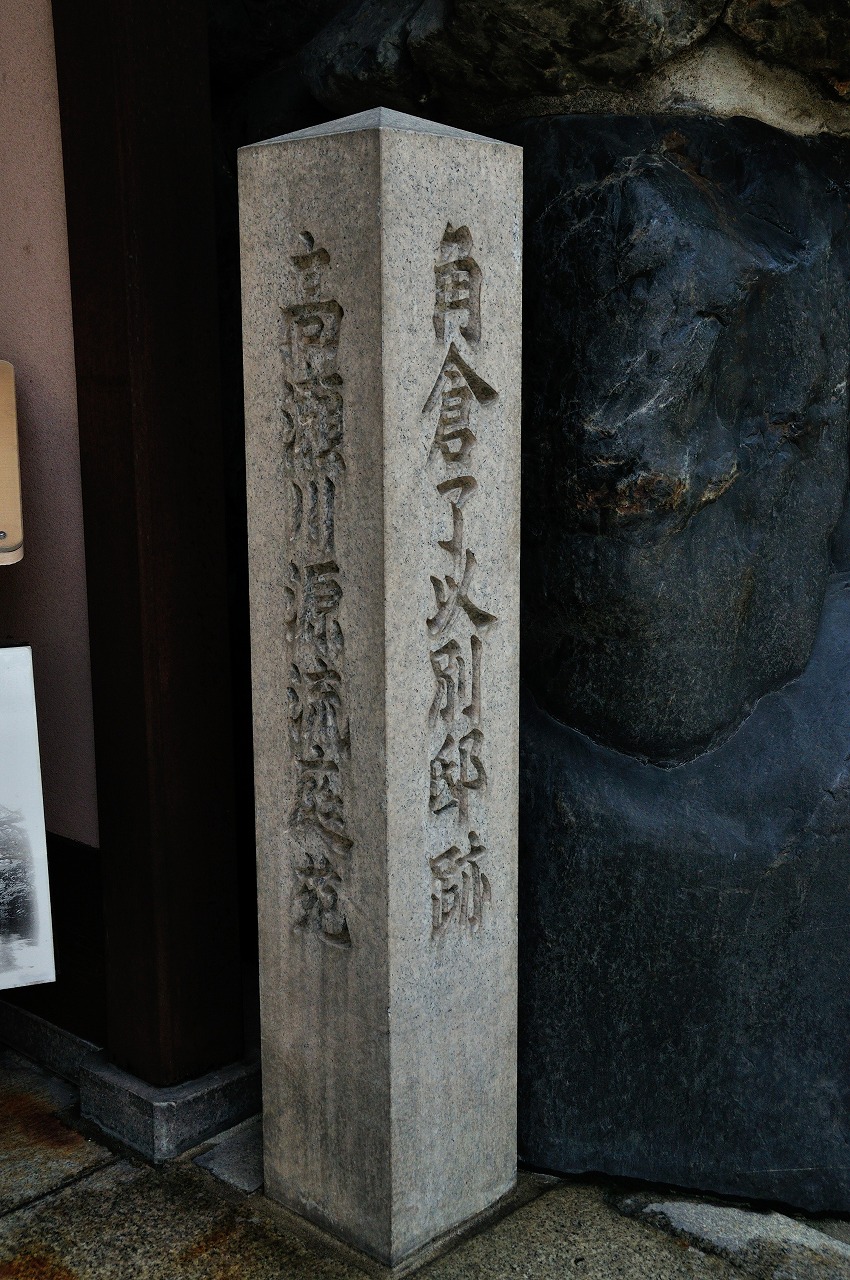 角倉了以別邸跡
高瀬川源流庭苑